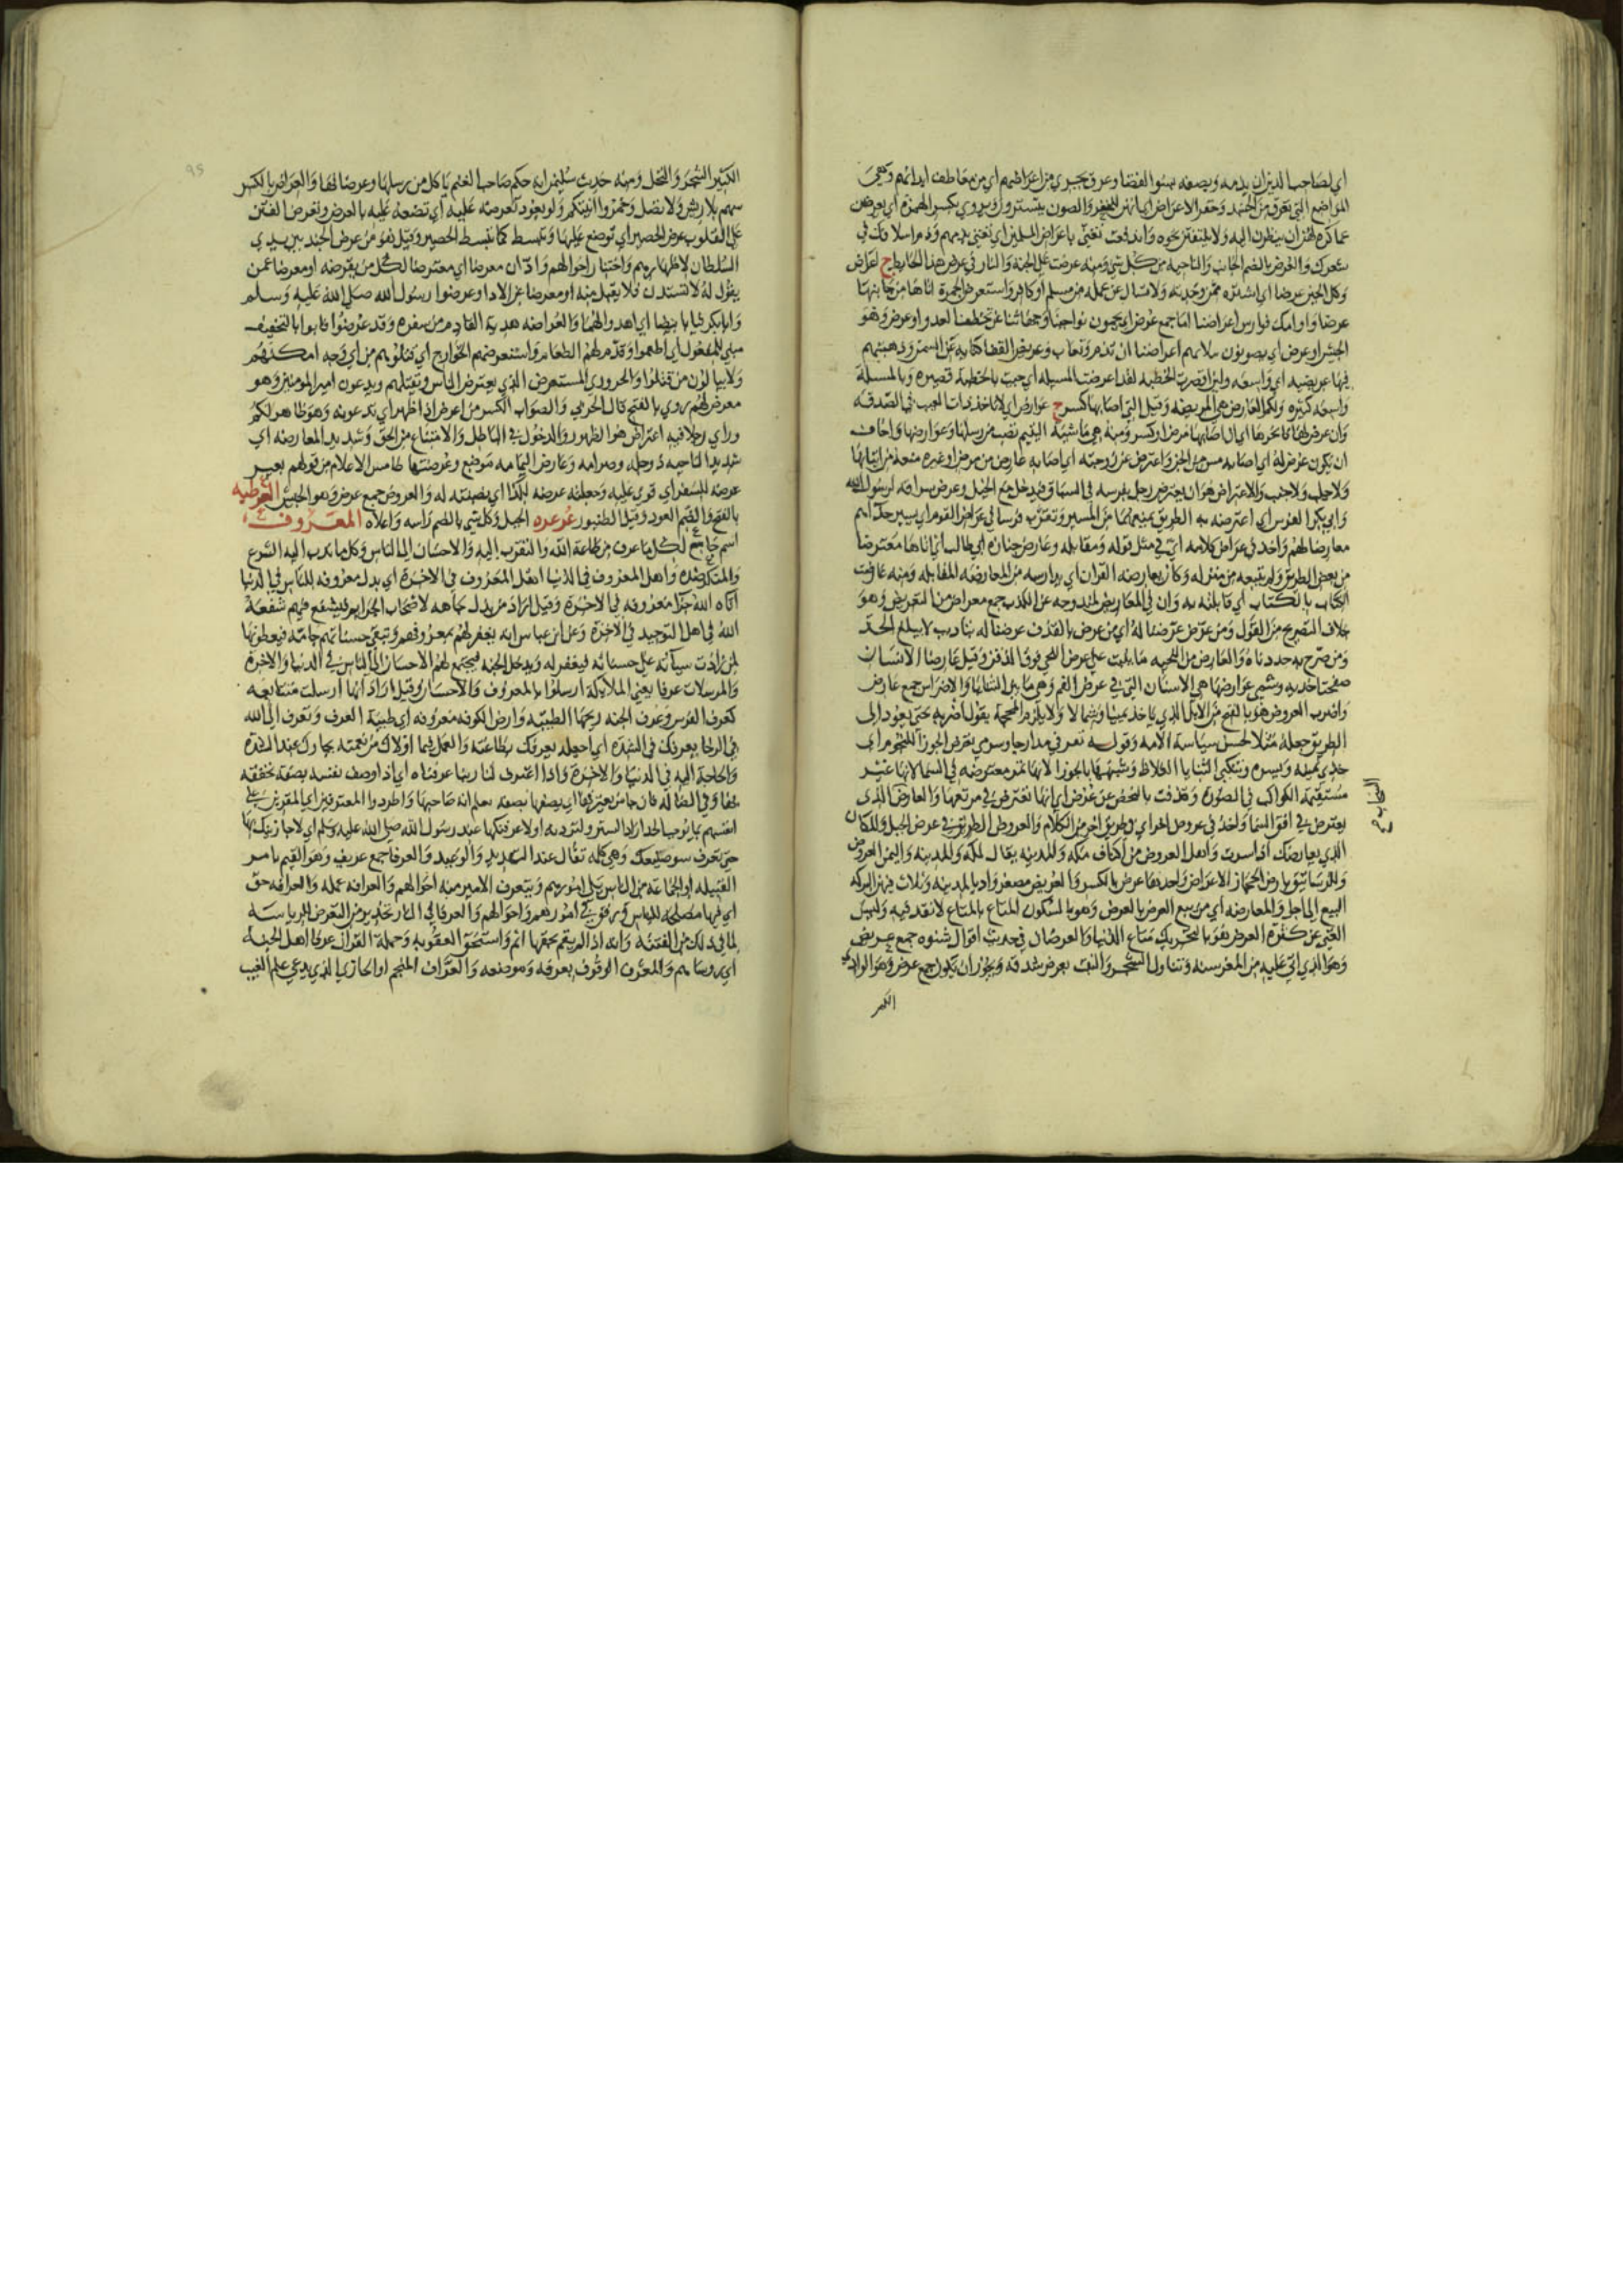 أي لصاحب الدين ان يذمه ويصفه بسوء القضا وعرق يجري من اعراضهم أي من معاطف ابدانهم وهي
المواضع التي تعرق من الجسد
عما كره لهن ان ينظرن اليه ولا يلتفتن نحوه واندفعت تغني باعراض المسلمين أي تغني بذمهم وذم اسلافهم في
شعرك والعرض بالضم الجانب والناحية من كل شي ومنه عرضت علي الجنة والنار في عرض هذا الحايط ج اعراض
وكل الجبن عرضا أي اشتره ممن وجدته ولا تسال عن عمله من مسلم أو كافر واستعرض الجمرة اتاها من جانبها
عرضا
الجيش او عرض أي يصونون ببلائهم اعراضنا ان تذم وتعاب وعريض القفا كناية عن السمن وذهبتم
فيها عريضة أي واسعة ولئن اقصرت الخطبة لقد اعرضت المسيلة أي جيت بالخطبة قصيرة وبالمسيلة
واسعة كثيرة ولكم العارض هي المريضة وقيل التي اصابها كسر ج عوارض أي لا ناخذ ذات العيب في الصدقة
ان يكون عرض له أي اصابه مس من الجن واعترض عن زوجته أي اصابه عارض من مرض او غيره منعه من اتيانها
ولا جلب ولا جنب ولا اعتراض هو ان يعترض رجل بفرسه في السباق فيدخل مع الخيل وعرض سراقة لرسول الله
وابي بكر الفرس أي اعترضه به الطريق يمنعهما من المسير
معارضا لهم واخذ في عراض كلامه أي في مثل قوله ومقابله وعارض جنازة أبي طالب أي اتاها معترضا
من بعض الطريق ولم يتبعه من منزله وكان يعارضه القران أي يدارسه من المعارضة المقابلة ومنه عارضت
الكتاب بالكتاب أي قابلته به وان في المعاريض لمندوحة عن الكذب جمع معراض من التعريض وهو
خلاف التصريح من القول ومن عرض عرضنا له أي من عرض بالقذف عرضنا له بتاديب لا يبلغ الحد
ومن صرح به حددناه والعارض من اللحية ما ينبت علي عرض اللحي فوق الذقن وقيل عارضا الانسان
صفحتا خديه وشمي عوارضها هي الاسنان التي في عرض الفم وهي ما بين الثنايا والاضراس جمع عارض
واضرب العروض هو بالفتح من الابل الذي ياخذ يمينا وشمالا ولا يلزم المحجة يقول اضربه حتى يعود الى
الطريق جعله مثلا لحسن سياسة الامة وقوله تعرضي مدارجا وسومي تعرض الجوزا للنجوم أي
خذي يمنة ويسرة وتنكبي الثنايا الغلاظ وشبهها بالجوزا لانها تمر معترضة في السما لانها غير
مستقيمة الكواكب في الصورة وقذفت بالنحض عن عرض أي انها تعترض في مرتعها والعارض الذي
يعترض في افق السما واخذ في عروض اخر أي في طريق اخر من الكلام والعروض الطريق في عرض الجبل والمكان
الذي يعارضك اذا سرت واهل العروض من اكناف مكة والمدينة يقال لمكة والمدينة واليمن العروض
البيع الي اجل والمعارضة أي من بيع العرض بالعرض وهو بالسكون المتاع بالمتاع لا نقد فيه وليس
الغني عن كثرة العرض هو بالتحريك متاع الدنيا والعرضان في حديث اقوال شنوة جمع عريض
وهو الذي اتي عليه من المعز سنة وتناول الشجر والنبت بعرض شدقه ويجوز ان يكون جمع عرض وهو الوادي
الكثير
95
الكثير الشجر والنخل ومنه حديث سليمن انه حكم صاحب الغنم ياكل من رسلها وعرضانها والمعراض بالكسر
سهم بلا ريش ولا نصل وخمروا آنيتكم ولو بعود تعرضه عليه أي تضعه عليه بالعرض وتعرض الفتن
علي القلوب عرض الحصير أي توضع عليها وتبسط كما تبسط الحصير وقيل هو من عرض الجند بين يدي
السلطان لاظهارهم واختبار احوالهم وادان معرضا أي معترضا لكل من يقرضه او معرضا عمن
يقول له لا تستدن فلا يقبل منه او معرضا عن الاداء وعرضوا رسول الله صلى الله عليه وسلم
وابا بكر ثيابا بيضا أي اهدوا لهما والعراضة هدية القادم من سفره وقد عرضوا فابوا بالتخفيف
مبني للمفعول أي اطعموا وقدم لهم الطعام واستعرضهم الخوارج أي قتلوهم من أي وجه امكنهم
ولا يبالون من قتلوا والحروري المستعرض الذي يعترض الناس ويقتلهم ويدعون امير المومنين وهو
معرض لهم روي بالفتح قال الحربي والصواب الكسر من اعرض اذا ظهر أي تدعونه وهو ظاهر لكم
وراي رجلا فيه اعتراض هو الظهور والدخول في الباطل والامتناع من الحق وشديد المعارضة أي
شديد الناحية ذو جلد وصرامة وعارض اليمامة موضع وعرضتها طامس الاعلام من قولهم بعير
عرضة للسفر أي قوي عليه وجعلته عرضة لكذا أي نصبته له والعروض جمع عرض وهو الجيش العرطبة
بالفتح والضم العود وقيل الطنبور عرعرة الجبل وكل شي بالضم راسه واعلاه المعروف
اسم جامع لكل ما عرف من طاعة الله والتقرب إليه والاحسان الى الناس وكل ما ندب اليه الشرع
والمنكر ضده واهل المعروف في الدنيا اهل المعروف في الاخرة أي من بذل معروفه للناس في الدنيا
اتاه الله جزا معروفه في الاخرة وقيل اراد من بذل جاهه لاصحاب الجرايم فيشفع فيهم شفعه
الله في اهل التوحيد في الاخرة وعن ابن عباس انه يغفر لهم بمعروفهم وتبقي حسناتهم جامة فيعطونها
لمن زادت سياته على حسناته فيغفر له ويدخل الجنة فيجتمع لهم الاحسان الى الناس في الدنيا والاخرة
والمرسلات عرفا يعني الملايكة ارسلوا بالمعروف والاحسان وقيل اراد انها ارسلت متتابعة
كعرف الفرس وعرف الجنة ريحها الطيبة وارض الكوفة معروفة أي طيبة العرف وتعرف الى الله
في الرخا يعرفك في الشدة أي اجعله يعرفك بطاعته والعمل فيما اولاك من نعمته يجازك عند الشدة
والحاجة اليه في الدنيا والاخرة واذا اعترف لنا ربنا عرفناه أي اذا وصف نفسه بصفة نحققه
بها وفي الضالة فان جا من يعترفها أي يصفها بصفة يعلم انه صاحبها واطردوا المعترفين أي المقرين على
انفسهم بما يوجب الحد اراد الستر ولتردنه او لاعرفنكها عند رسول الله صلى الله عليه وسلم أي لاجازينك بها
حتى تعرف سو صنيعك وهي كلمة تقال عند التهديد والوعيد والعرفا جمع عريف وهو القيم بامر
القبيلة او الجماعة من الناس يلي امورهم ويتعرف الامير منه احوالهم والعرافة عمله والعرافة حق
أي فيها مصلحة للناس ورفق في امورهم واحوالهم والعرفا في النار تحذير من التعرض للرياسة
لما في ذلك من الفتنة وانه اذا لم يقم بحقها اثم واستحق العقوبة وحملة القران عرفا اهل الجنة
أي روساهم والمعرف الوقوف بعرفة وموضعه والعراف المنجم او الحازي الذي يدعي علم الغيب